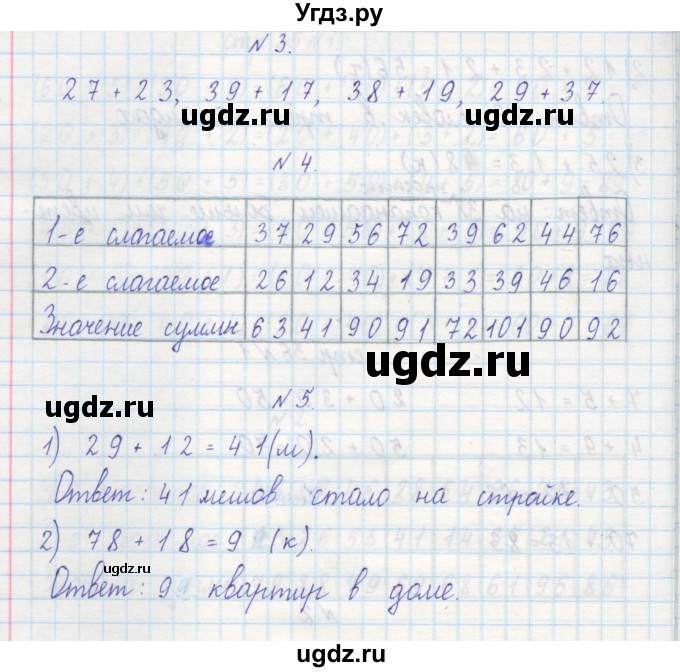 Угдз.ру
№ 3.
27 + 23, 39 + 17, 38 + 19, 29 + 37 -
ugdz.ru ugdz.ru
№ 4.
1-е слагаемое 37 29 56 72 39 62 44 76
2-е слагаемое 26 12 34 19 33 39 46 16
Значение суммы 63 41 90 91 72 101 90 92
ugdz.ru
ugdz.ru
№ 5.
1) 29 + 12 = 41 (м).
Ответ: 41 мешов стало на стройке.
2) 78 + 18 = 9 (к).
ugdz.ru
Ответ: 9 квартир в доме.
ugdz.ru